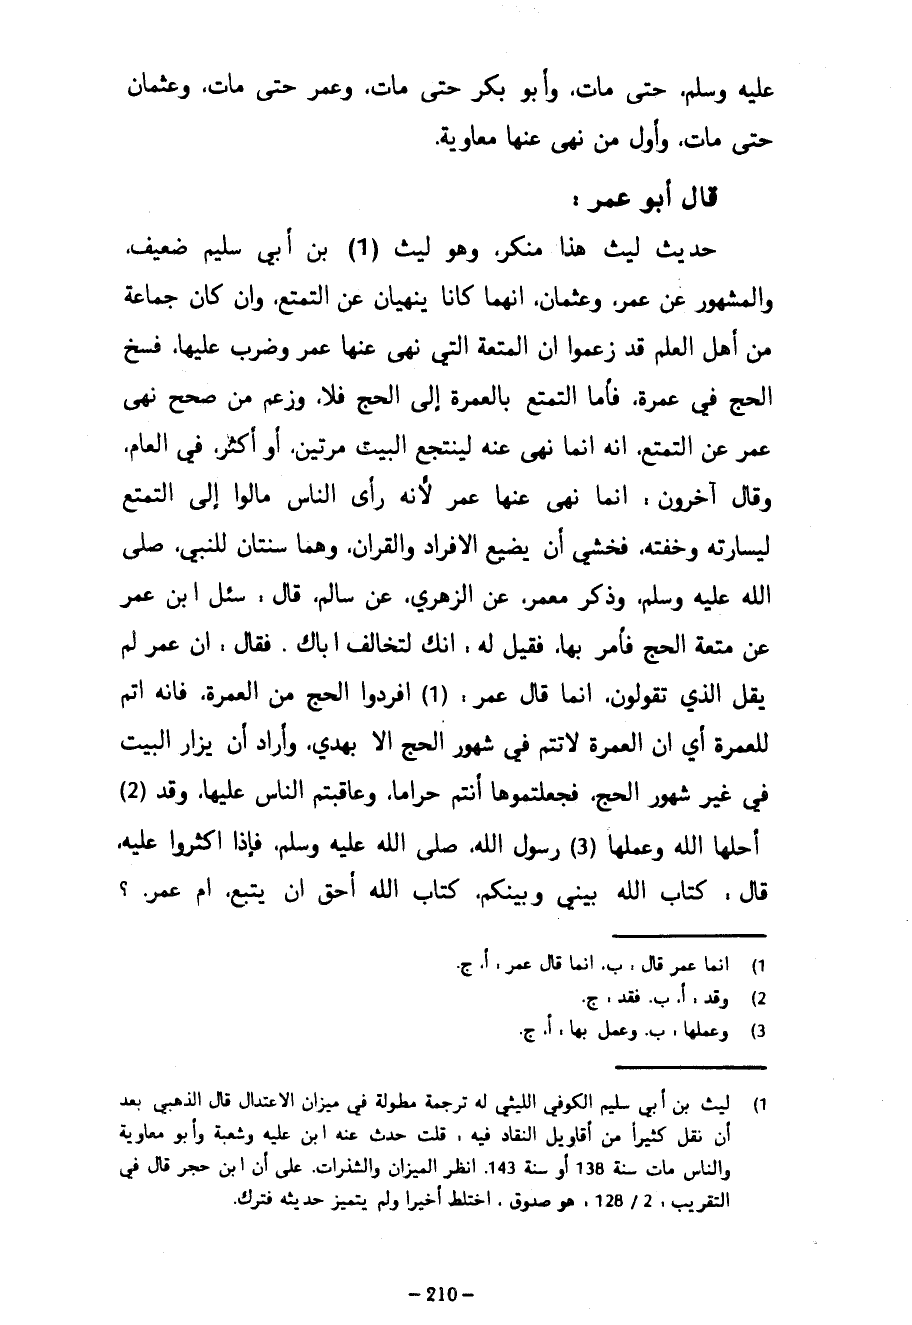 عليه وسلم، حتى مات، وأبو بكر حتى مات، وعمر حتى مات، وعثمان
حتى مات، وأول من نهى عنها معاوية.
قال أبو عمر :
حديث ليث هذا منكر، وهو ليث (1) بن أبي سليم ضعيف،
والمشهور عن عمر، وعثمان، انهما كانا ينهيان عن التمتع، وان كان جماعة
من أهل العلم قد زعموا ان المتعة التي نهى عنها عمر وضرب عليها، فسخ
الحج في عمرة، فأما التمتع بالعمرة إلى الحج فلا، وزعم من صحح نهى
عمر عن التمتع، انه انما نهى عنه لينتجع البيت مرتين، أو أكثر، في العام،
وقال آخرون : انما نهى عنها عمر لأنه رأى الناس مالوا إلى التمتع
ليسارته وخفته، فخشي أن يضيع الافراد والقران، وهما سنتان للنبي، صلى
الله عليه وسلم، وذكر معمر، عن الزهري، عن سالم، قال : سئل ابن عمر
عن متعة الحج فأمر بها، فقيل له : انك لتخالف اباك . فقال : ان عمر لم
يقل الذي تقولون، انما قال عمر : (1) افردوا الحج من العمرة، فانه اتم
للعمرة أي ان العمرة لاتتم في شهور الحج الا بهدي، وأراد أن يزار البيت
في غير شهور الحج، فجعلتموها أنتم حراما، وعاقبتم الناس عليها، وقد (2)
أحلها الله وعملها (3) رسول الله، صلى الله عليه وسلم، فإذا اكثروا عليه،
قال : كتاب الله بيني وبينكم، كتاب الله أحق ان يتبع، ام عمر. ؟
1) انما عمر قال : ب، انما قال عمر : أ، ج.
2) وقد : أ، ب. فقد : ج.
3) وعملها : ب. وعمل بها : أ، ج.
1) ليث بن أبي سليم الكوفي الليثي له ترجمة مطولة في ميزان الاعتدال قال الذهبي بعد
أن نقل كثيراً من أقاويل النقاد فيه : قلت حدث عنه ابن علية وشعبة وأبو معاوية
والناس مات سنة 138 أو سنة 143. انظر الميزان والشذرات. على أن ابن حجر قال في
التقريب : 2 / 128 : هو صدوق . اختلط أخيرا ولم يتميز حديثه فترك.
- 210 -